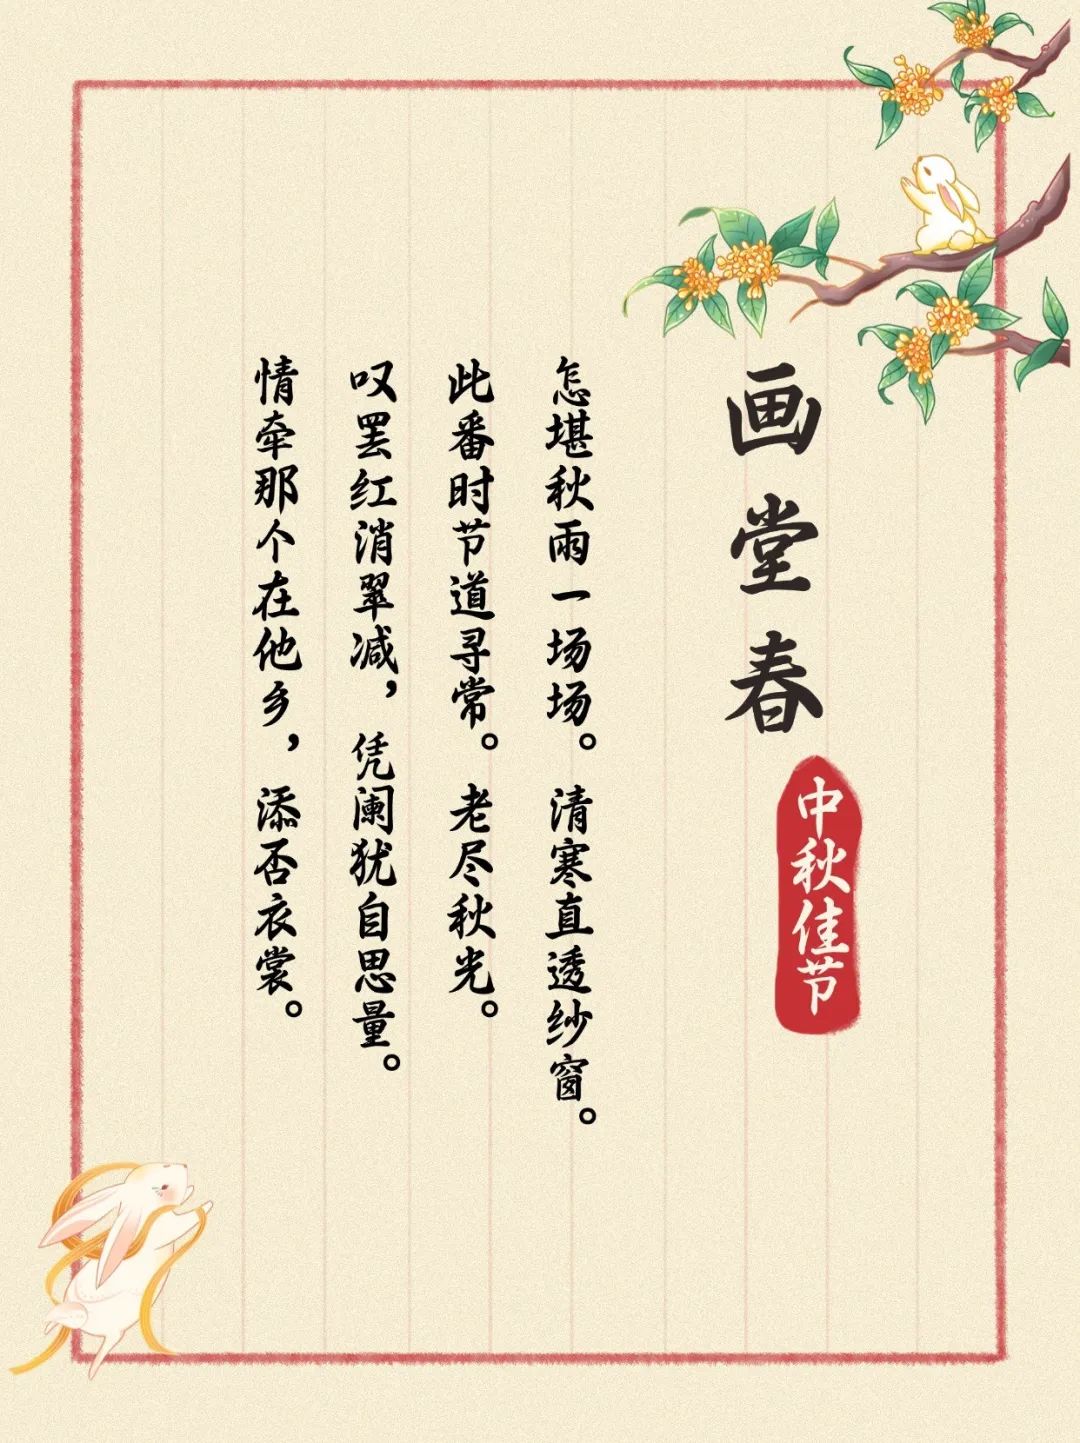 画堂春
中秋佳节
怎堪秋雨一场场。清寒直透纱窗。
此番时节道寻常。老尽秋光。
叹罢红消翠减，凭阑犹自思量。
情牵那个在他乡，添否衣裳。